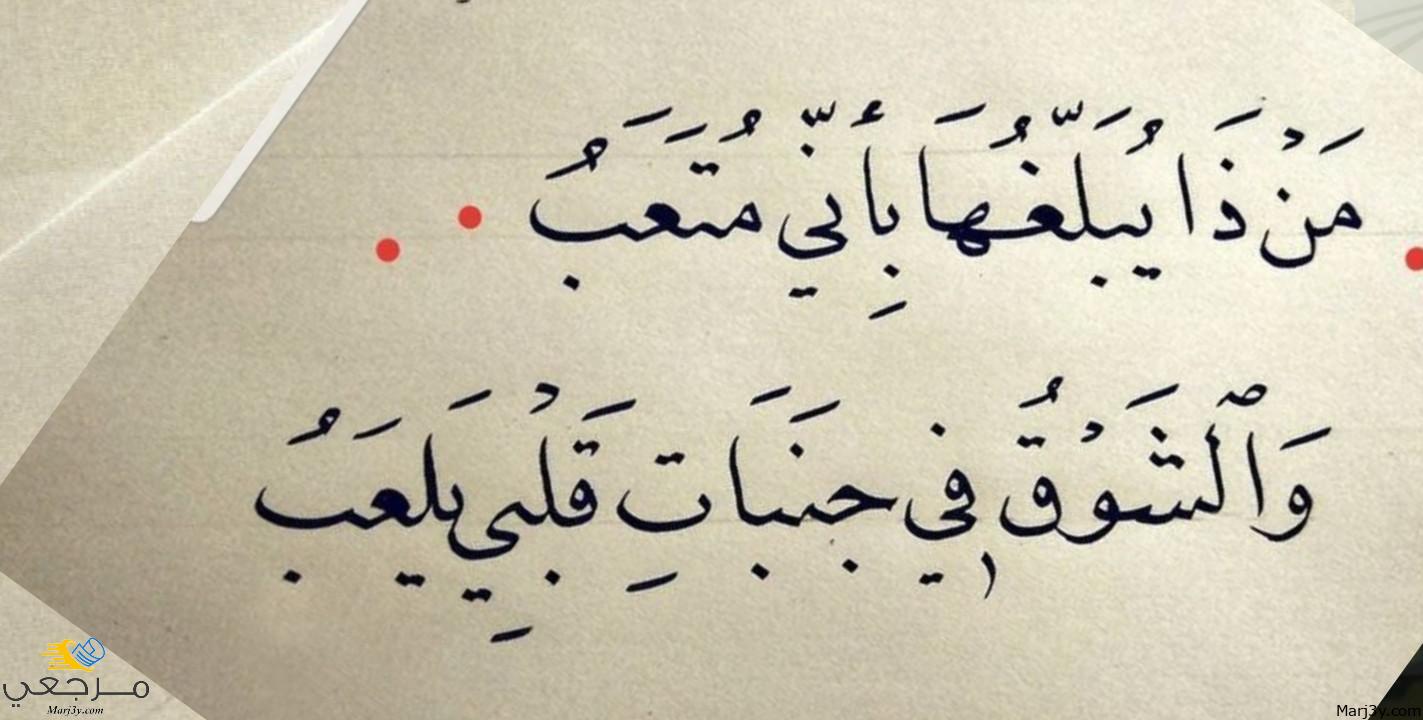 مَنْ ذَا يُبَلِّغُهَا بِأَنِّي مُتَعَبُ
وَٱلشَّوْقُ فِي جَنَبَاتِ قَلْبِي يَلْعَبُ
مرجعي
Marj3y.com
Marj3y.com